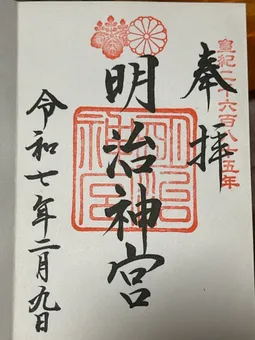 皇紀二千六百八十五年
奉拝
明治神宮
明治
神宮
令和七年二月九日